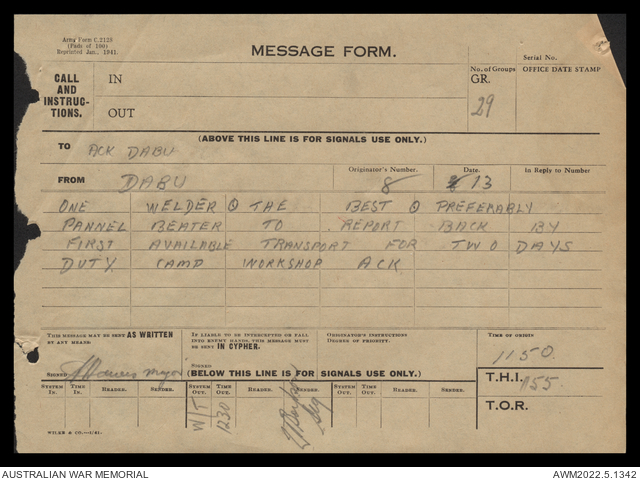 Army Form C.2128
(Pads of 100)
Reprinted Jan., 1941.
MESSAGE FORM.
Serial No.
CALL AND INSTRUC-TIONS.
IN
OUT
No. of Groups
GR.
29
OFFICE DATE STAMP
(ABOVE THIS LINE IS FOR SIGNALS USE ONLY.)
TO ACK DABU
FROM DABU
Originator's Number. 8
Date. 13
In Reply to Number
ONE WELDER ⊙ THE BEST ⊙ PREFERABLY
PANNEL BEATER TO REPORT BACK BY
FIRST AVAILABLE TRANSPORT FOR TWO DAYS
DUTY CAMP WORKSHOP ACK
THIS MESSAGE MAY BE SENT AS WRITTEN
BY ANY MEANS.
IF LIABLE TO BE INTERCEPTED OR FALL
INTO ENEMY HANDS, THIS MESSAGE MUST
BE SENT IN CIPHER.
ORIGINATOR'S INSTRUCTIONS
DEGREE OF PRIORITY.
TIME OF ORIGIN
1150.
SIGNED Major
SIGNED
(BELOW THIS LINE IS FOR SIGNALS USE ONLY.)
T.H.I. 1155.
T.O.R.
SYSTEM IN. TIME IN. READER. SENDER. SYSTEM OUT. TIME OUT. READER. SENDER. SYSTEM OUT. TIME OUT. READER. SENDER.
W/T 1230 Sig
WILKE & CO.—1/41.
AUSTRALIAN WAR MEMORIAL
AWM2022.5.1342